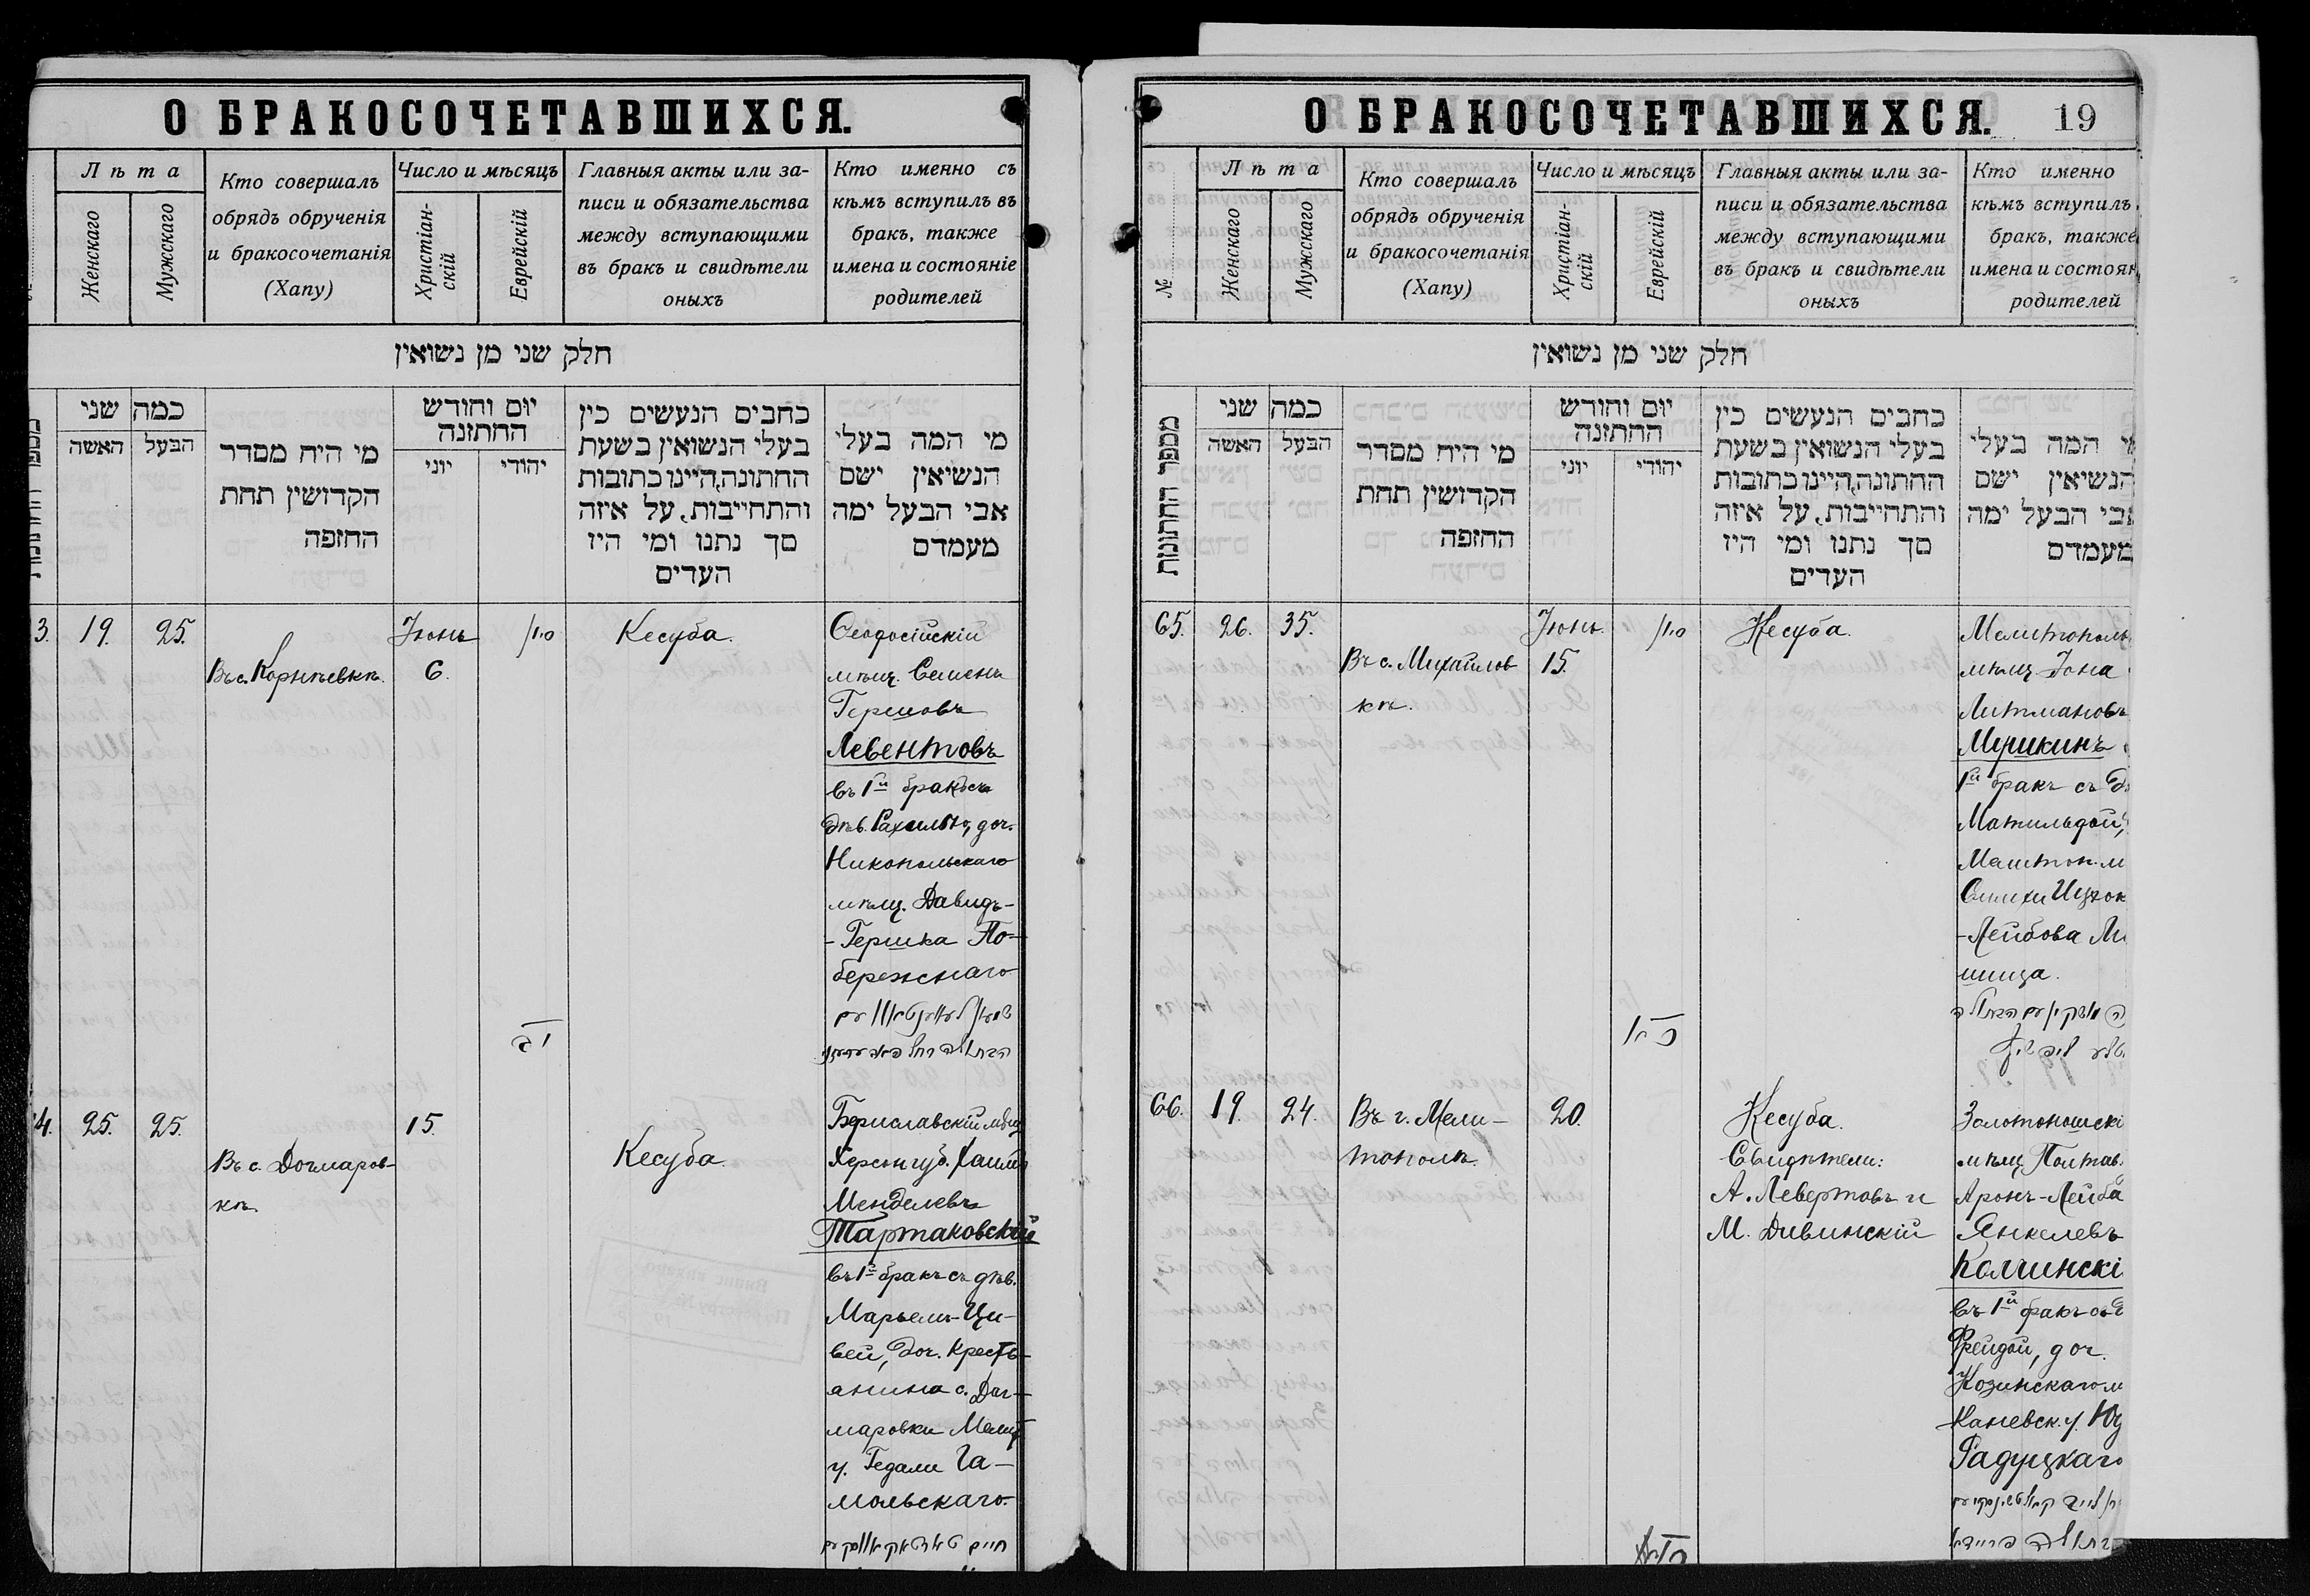 О БРАКОСОЧЕТАВШИХСЯ.
Лѣта
Женскаго
Мужскаго
Кто совершалъ
обрядъ обрученія
и бракосочетанія
(Хапу)
Число и мѣсяцъ
Христіан-
скій
Еврейскій
Главныя акты или за-
писи и обязательства
между вступающими
въ бракъ и свидѣтели
оныхъ
Кто именно съ
кѣмъ вступилъ въ
бракъ, также
имена и состояніе
родителей
חלק שני מן נשואין
כמה שני
האשה
הבעל
מי היה מסדר
הקדושין תחת
החופה
יום וחודש
החתונה
יוני
יהודי
כתבים הנעשים בין
בעלי הנשואין בשעת
החתונה,היינו כתובות
והתחייבות, על איזה
סך נתנו ומי היו
העדים
מי המה בעלי
הנשיאין ושם
אבי הבעל ומה
מעמדם
3.
19.
25.
Въ с. Корнѣевкѣ.
Іюнь
6.
Кесуба.
Ѳеодосійскій
мѣщ. Семенъ
Гершовъ
Левентовъ
въ 1й бракъ съ
дѣв. Рахилью, доч.
Никопольскаго
мѣщ. Давидъ-
-Гершка По-
бережскаго
4.
25.
25.
Въ с. Догмаров-
кѣ.
15.
Кесуба.
Бериславскій мѣщ
Херсон губ. Хаимъ
Менделевъ
Тартаковскій
въ 1й бракъ съ дѣв.
Марьемъ-Ци-
вей, доч. Кресть-
янина с. Дог-
маровки Мелит
у. Гедали Га-
мольскаго.
О БРАКОСОЧЕТАВШИХСЯ.
19
№
Лѣта
Женскаго
Мужскаго
Кто совершалъ
обрядъ обрученія
и бракосочетанія
(Хапу)
Число и мѣсяцъ
Христіан-
скій
Еврейскій
Главныя акты или за-
писи и обязательства
между вступающими
въ бракъ и свидѣтели
оныхъ
Кто именно
кѣмъ вступилъ
бракъ, также
имена и состоян
родителей
חלק שני מן נשואין
מספר החתונות
כמה שני
האשה
הבעל
מי היה מסדר
הקדושין תחת
החופה
יום וחודש
החתונה
יוני
יהודי
כתבים הנעשים בין
בעלי הנשואין בשעת
החתונה,היינו כתובות
והתחייבות, על איזה
סך נתנו ומי היו
העדים
המה בעלי
הנשיאין ושם
אבי הבעל ומה
מעמדם
65.
26.
35.
Въ с. Михайлов
кѣ.
Іюнь.
15.
Кесуба.
Мелитополь
мѣщ. Іона
Литмановъ
Мушкинъ
1й бракъ съ
Матильдой,
Мелитоп. м
Симхи Ицхок
-Лейбова Ли
шица.
66.
19.
24.
Въ г. Мели-
тополѣ.
20.
Кесуба.
Свидѣтели:
А. Левертовъ и
М. Дивинскій
Золотоношскі
мѣщ. Полтав.
Аронъ-Лейба
Янкелевъ
Колчинскі
въ 1й бракъ съ
Фрейдой, доч.
Козинскаго м
Каневск. у.
Радуцкаго